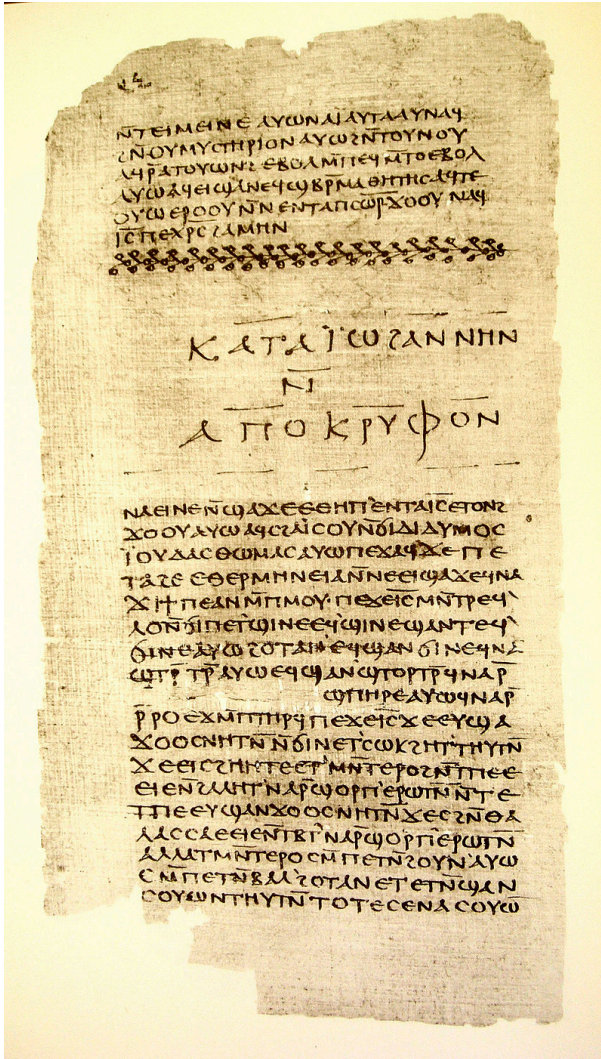 ⲛ̅ⲧⲉⲓⲙⲉⲓⲛⲉ ⲁⲩⲱⲛⲁⲓ̈ⲁⲩⲧⲁⲁⲩⲛⲁϥ
ϩⲛ̅ⲟⲩⲙⲩⲥⲧⲏⲣⲓⲟⲛⲁⲩⲱϩⲛ̅ⲧⲟⲩⲛⲟⲩ
ⲁϥⲣ̅ⲁⲧⲟⲩⲱⲛϩⲉⲃⲟⲗⲙ̅ⲡⲉϥⲙ̅ⲧⲟⲉⲃⲟⲗ
ⲁⲩⲱⲁϥⲉⲓϣⲁⲛⲉϥϣⲃⲣ̅ⲙⲁⲑⲏⲧⲏⲥⲁϥⲧⲉ
ⲟⲩⲱⲉⲣⲟⲟⲩⲛ̅ⲛⲉⲛⲧⲁⲡⲥⲱ̅ⲣ̅ϫⲟⲟⲩⲛⲁϥ
ⲓ̅ⲥ̅ⲡⲉⲭ̅ⲣ̅ⲥ̅ϩⲁⲙⲏⲛ
ⲕⲁⲧⲁⲓ̈ⲱϩⲁⲛⲛⲏⲛ
ⲛ̅
ⲁⲡⲟⲕⲣⲩⲫⲟⲛ
ⲛⲁⲉⲓⲛⲉⲛ̅ϣⲁϫⲉⲉⲑⲏⲡ'ⲉⲛⲧⲁⲓ̅ⲥ̅ⲉⲧⲟⲛϩ
ϫⲟⲟⲩⲁⲩⲱⲁϥⲥϩⲁⲓ̈ⲥⲟⲩⲛ̅ϭⲓⲇⲓⲇⲩⲙⲟⲥ
ⲓ̈ⲟⲩⲇⲁⲥⲑⲱⲙⲁⲥⲁⲩⲱⲡⲉϫⲁϥϫⲉⲡⲉ
ⲧⲁϩⲉⲉⲑⲉⲣⲙⲏⲛⲉⲓⲁⲛ̅ⲛⲉⲉⲓϣⲁϫⲉϥⲛⲁ
ϫⲓϯⲡⲉⲁⲛⲙ̅ⲡⲙⲟⲩ·ⲡⲉϫⲉⲓ̅ⲥ̅ⲙⲛ̅ⲧⲣⲉϥ'
ⲗⲟⲛ̅ϭⲓⲡⲉⲧ'ϣⲓⲛⲉⲉϥϣⲓⲛⲉϣⲁⲛⲧⲉϥ'
ϭⲓⲛⲉⲁⲩⲱϩⲟⲧⲁⲛⲉϥϣⲁⲛϭⲓⲛⲉϥⲛⲁ
ϣⲧⲣ̅ⲧⲣ̅ⲁⲩⲱⲉϥϣⲁⲛϣⲧⲟⲣⲧⲣ̅ϥⲛⲁⲣ̅
ϣⲡⲏⲣⲉⲁⲩⲱϥⲛⲁⲣ̅
ⲣ̅ⲣⲟⲉϫⲙ̅ⲡⲧⲏⲣϥⲡⲉϫⲉⲓ̅ⲥ̅ϫⲉⲉⲩϣⲁ
ϫⲟⲟⲥⲛⲏⲧⲛ̅ⲛ̅ϭⲓⲛⲉⲧ'ⲥⲱⲕϩⲏⲧ'ⲑⲏⲩⲧⲛ̅
ϫⲉⲉⲓⲥϩⲏⲏⲧⲉⲉⲧ'ⲙⲛ̅ⲧⲉⲣⲟϩⲛ̅ⲧⲡⲉⲉ
ⲉⲓⲉⲛϩⲁⲗⲏⲧ'ⲛⲁⲣ̅ϣⲟⲣⲡ'ⲉⲣⲱⲧⲛ̅ⲛ̅ⲧⲉ
ⲧⲡⲉⲉⲩϣⲁⲛϫⲟⲟⲥⲛⲏⲧⲛ̅ϫⲉⲥϩⲛ̅ⲑⲁ
ⲗⲁⲥⲥⲁⲉⲉⲓⲉⲛⲧⲃⲧ'ⲛⲁⲣ̅ϣⲟⲣⲡ'ⲉⲣⲱⲧⲛ̅
ⲁⲗⲗⲁⲧⲙⲛ̅ⲧⲉⲣⲟⲥⲙ̅ⲡⲉⲧⲛ̅ϩⲟⲩⲛ'ⲁⲩⲱ
ⲥⲙ̅ⲡⲉⲧⲛ̅ⲃⲁⲗ'ϩⲟⲧⲁⲛⲉⲧⲉⲧⲛ̅ϣⲁⲛ
ⲥⲟⲩⲱⲛⲧⲏⲩⲧⲛ̅ⲧⲟⲧⲉⲥⲉⲛⲁⲥⲟⲩⲱ̅